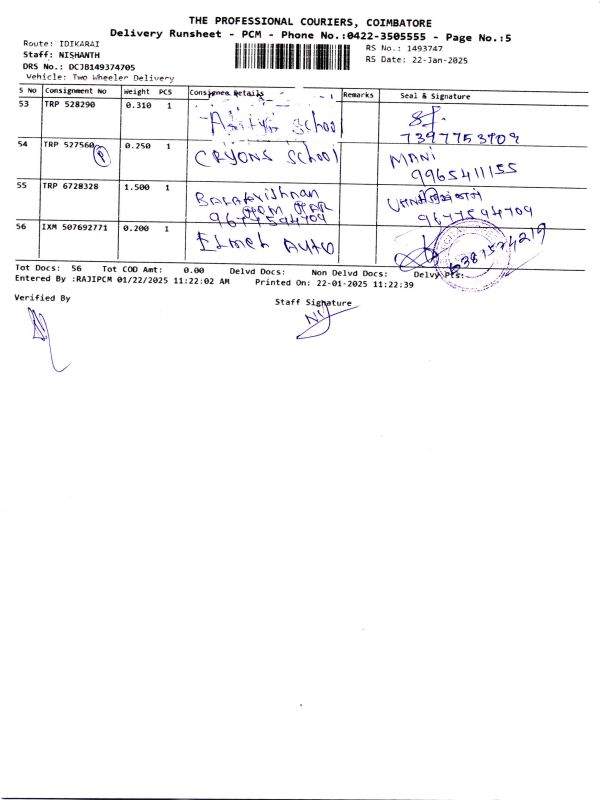 THE PROFESSIONAL COURIERS, COIMBATORE
Delivery Runsheet - PCM - Phone No.:0422-3505555 - Page No.:5
Route: IDIKARAI
RS No.: 1493747
Staff: NISHANTH
RS Date: 22-Jan-2025
DRS No.: DCJB149374705
Vehicle: Two Wheeler Delivery
S No Consignment No Weight PCS Consignee Details Remarks Seal & Signature
53 TRP 528290 0.310 1 School
7397753709
54 TRP 527560 P 0.250 1 CRYONS School MANI
9965411155
55 TRP 6728328 1.500 1 Balakrishnan
9677594709 9677594709
56 IXM 507692771 0.200 1 Elmeh AUTO
6381524219
Tot Docs: 56 Tot COD Amt: 0.00 Delvd Docs: Non Delvd Docs: Delvy Pts:
Entered By :RAJIPCM 01/22/2025 11:22:02 AM Printed On: 22-01-2025 11:22:39
Verified By
Staff Signature